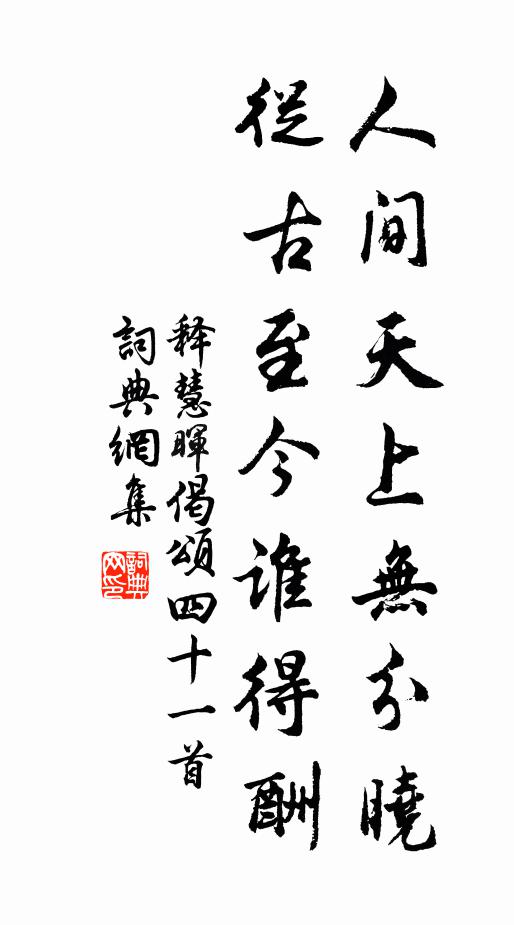 人間天上無分曉
從古至今誰得酬
释慧暉偈頌四十一首
詞典網集
詞典
网印